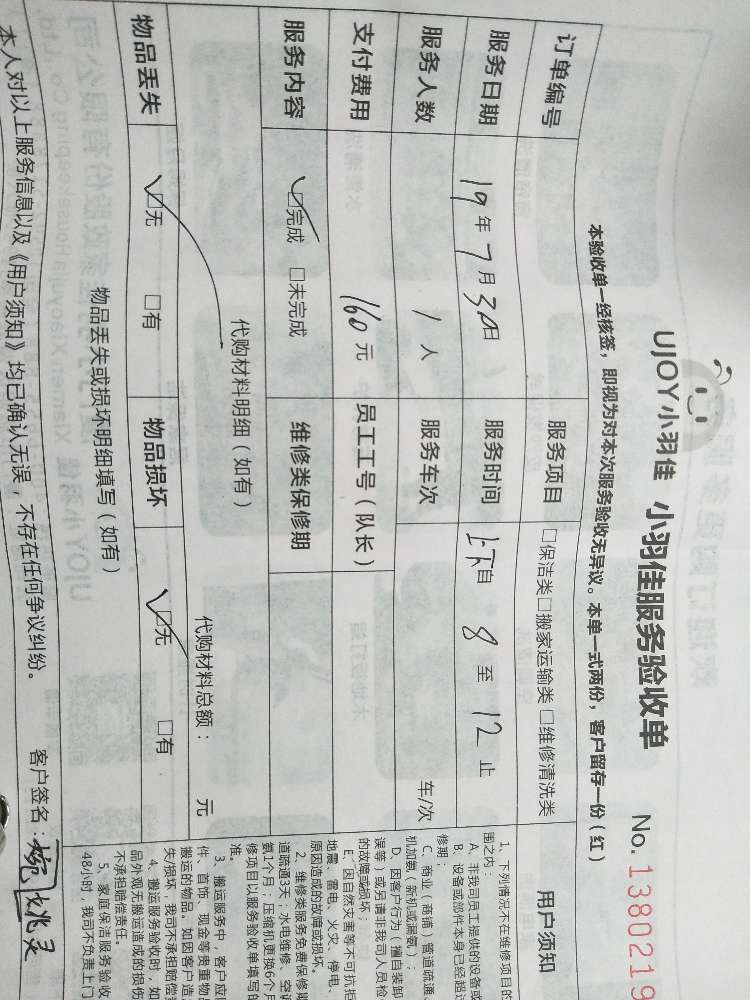 UJOY小羽佳 小羽佳服务验收单 No.1380219
本验收单一经核签，即视为对本次服务验收无异议。本单一式两份，客户留存一份（红）
订单编号 服务项目 □保洁类□搬家运输类□维修清洗类
服务日期 19年7月30日 服务时间 自 8 至 12 止
服务人数 1 人 服务车次 车/次
支付费用 160 元 员工工号（队长）
服务内容 □完成 □未完成 维修类保修期
代购材料明细（如有） 代购材料总额： 元
物品丢失 □无 □有 物品损坏 □无 □有
物品丢失或损坏明细填写（如有）
本人对以上服务信息以及《用户须知》均已确认无误，不存在任何争议纠纷。 客户签名：
用户须知
1、下列情况不在维修项目的
围之内：
A、非我司员工提供的设备或
B、设备或部件本身已经超过
修期；
C、商业（商铺）管道疏通
机加氨（新机或漏氨）；
D、因客户行为（擅自装卸
误等）或另请非我司人员检
的故障或损坏；
E、因自然灾害等不可抗拒
地震、雷电、火灾、停电、
原因造成的故障或损坏。
2、维修类服务免费保修期
道疏通3天；水电维修、空
氨1个月；压缩机更换6个月
修项目以服务验收单填写的
准。
3、搬运服务中，客户应
件、首饰、现金等贵重物
搬运的物品。如因客户造
失/损坏，我司不承担赔偿
4、搬运服务验收时，如
品外观无搬运造成的损伤
不承担赔偿责任。
5、家庭保洁服务验收
48小时，我司不负责上门